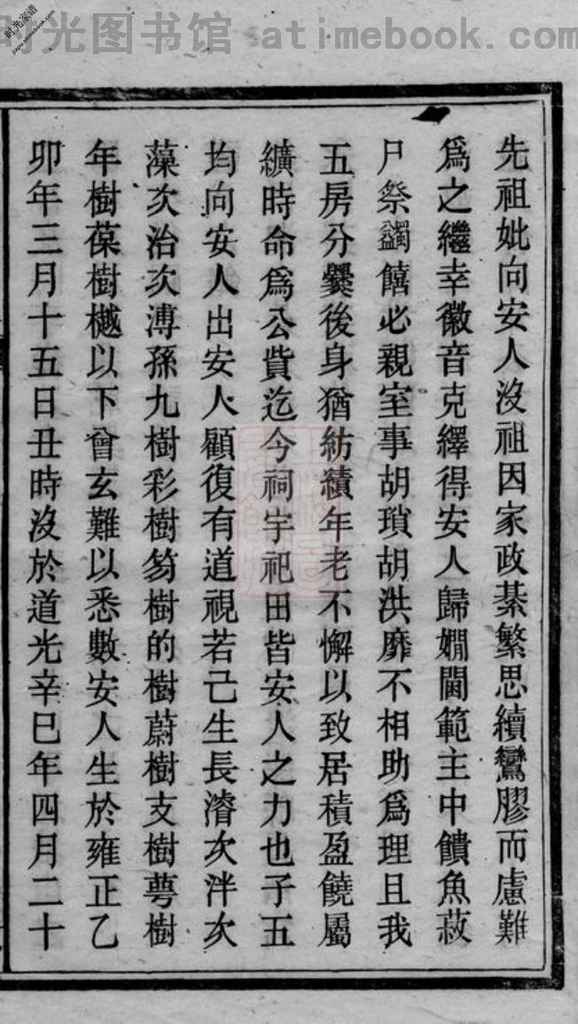 时光图书馆 atimebook.com
先祖妣向安人沒祖因家政綦繁思續鸞膠而慮難
爲之繼幸徽音克繹得安人歸嫺閫範主中饋魚菽
尸祭蠲饎必親室事胡瑣胡洪靡不相助爲理且我
五房分爨後身猶紡績年老不懈以致居積盈饒屬
纊時命爲公貲迄今祠宇祀田皆安人之力也子五
均向安人出安人顧復有道視若己生長濬次泮次
藻次治次溥孫九樹彩樹芴樹的樹蔚樹支樹萼樹
年樹葆樹樾以下曾玄難以悉數安人生於雍正乙
卯年三月十五日丑時沒於道光辛巳年四月二十